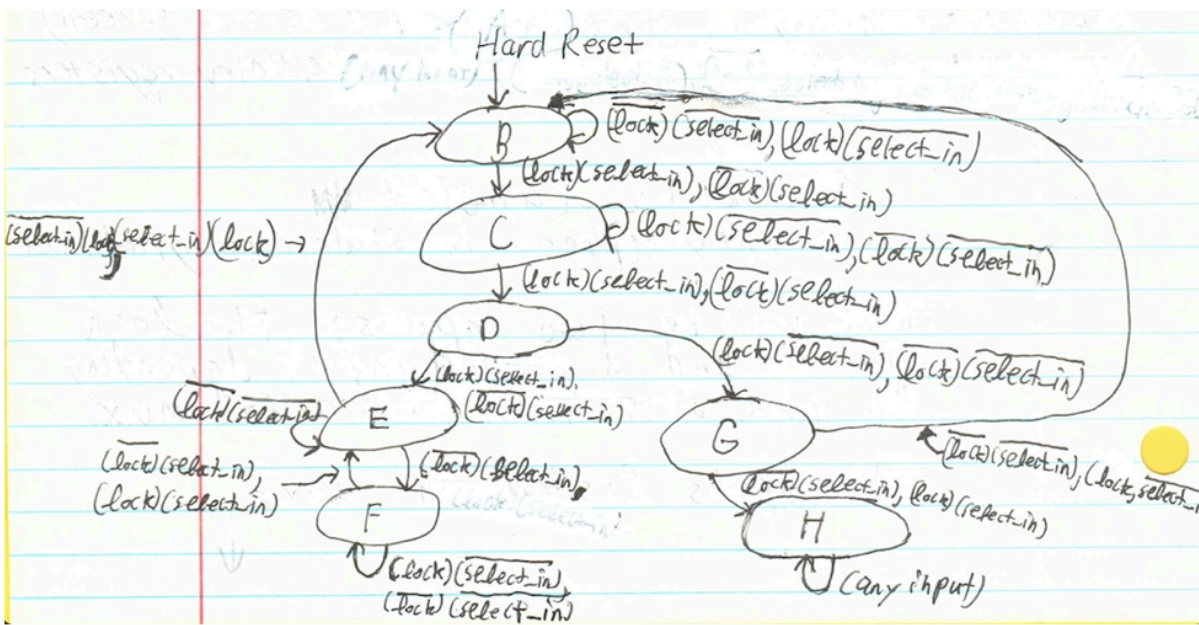 Hard Reset
B
(l̅o̅c̅k̅)(s̅e̅l̅e̅c̅t̅_̅i̅n̅),(lock)(s̅e̅l̅e̅c̅t̅_̅i̅n̅)
(lock)(select_in),(l̅o̅c̅k̅)(select_in)
(s̅e̅l̅e̅c̅t̅_̅i̅n̅)(lock), (select_in)(lock) →
C
(lock)(s̅e̅l̅e̅c̅t̅_̅i̅n̅),(l̅o̅c̅k̅)(s̅e̅l̅e̅c̅t̅_̅i̅n̅)
(lock)(select_in),(l̅o̅c̅k̅)(select_in)
D
(lock)(s̅e̅l̅e̅c̅t̅_̅i̅n̅),(l̅o̅c̅k̅)(s̅e̅l̅e̅c̅t̅_̅i̅n̅)
(lock)(select_in),
(l̅o̅c̅k̅)(select_in)
(l̅o̅c̅k̅)(s̅e̅l̅e̅c̅t̅_̅i̅n̅)
E
G
(l̅o̅c̅k̅)(s̅e̅l̅e̅c̅t̅_̅i̅n̅),(lock, s̅e̅l̅e̅c̅t̅_̅i̅
(l̅o̅c̅k̅)(select_in),
(lock)(select_in)
(l̅o̅c̅k̅)(select_in),
(l̅o̅c̅k̅)(select_in), (lock)(select_in)
F
H
(lock)(s̅e̅l̅e̅c̅t̅_̅i̅n̅)
(l̅o̅c̅k̅)(s̅e̅l̅e̅c̅t̅_̅i̅n̅)
(any input)